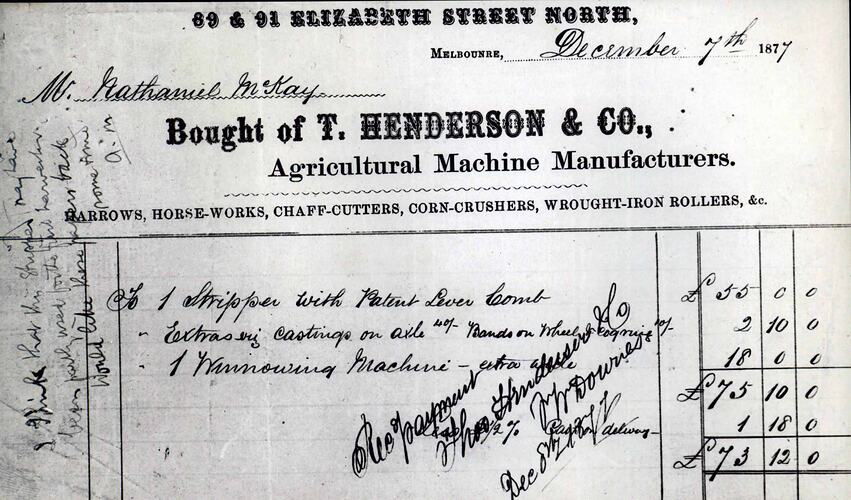 89 & 91 ELIZABETH STREET NORTH,
MELBOUNRE, December 7th 1877
Mr. Nathaniel McKay
Bought of T. HENDERSON & CO.,
Agricultural Machine Manufacturers.
HARROWS, HORSE-WORKS, CHAFF-CUTTERS, CORN-CRUSHERS, WROUGHT-IRON ROLLERS, &c.
To 1 Stripper with Patent Lever Comb £ 55 0 0
" Extras castings on axle 40/- Bands on Wheel 10/- 2 10 0
" 1 Winnowing Machine - extra 18 0 0
£ 75 10 0
2½ % delivery 1 18 0
£ 73 12 0
Rec payment
Thos Henderson & Co
W Downes
Dec 8th 1877
I think that this Stripper may have
been used for the first harvester.
Would like these papers back
some time